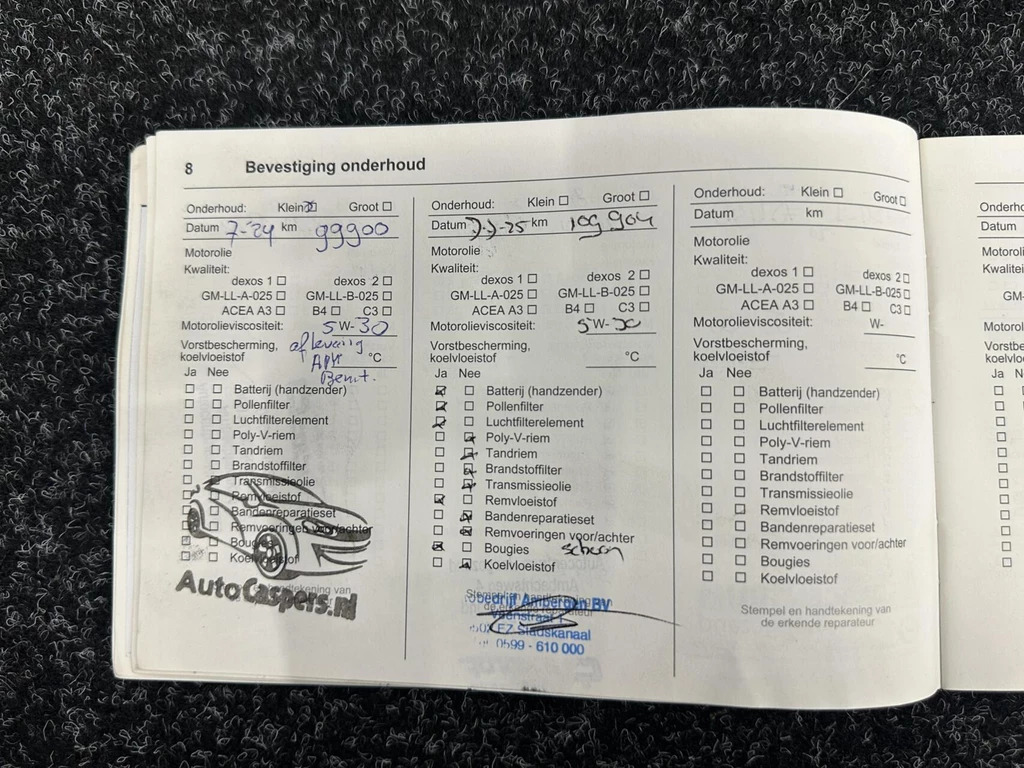 8 Bevestiging onderhoud
Onderhoud: Klein Groot
Datum 7-24 km 99900
Motorolie
Kwaliteit:
dexos 1 dexos 2
GM-LL-A-025 GM-LL-B-025
ACEA A3 B4 C3
Motorolieviscositeit: 5 W-30
Vorstbescherming, aflevering
koelvloeistof APK °C
Beurt.
Ja Nee
Batterij (handzender)
Pollenfilter
Luchtfilterelement
Poly-V-riem
Tandriem
Brandstoffilter
Transmissieolie
Remvloeistof
Bandenreparatieset
Remvoeringen voor/achter
Bougies
Koelvloeistof
handtekening van
AutoCaspers.nl
Onderhoud: Klein Groot
Datum km 109 904
Motorolie
Kwaliteit:
dexos 1 dexos 2
GM-LL-A-025 GM-LL-B-025
ACEA A3 B4 C3
Motorolieviscositeit: 5W-30
Vorstbescherming,
koelvloeistof °C
Ja Nee
Batterij (handzender)
Pollenfilter
Luchtfilterelement
Poly-V-riem
Tandriem
Brandstoffilter
Transmissieolie
Remvloeistof
Bandenreparatieset
Remvoeringen voor/achter
Bougies schoon
Koelvloeistof
Stempel en handtekening
de erkende reparateur
Ambergen BV
Stadskanaal
0599 - 610 000
Onderhoud: Klein Groot
Datum km
Motorolie
Kwaliteit:
dexos 1 dexos 2
GM-LL-A-025 GM-LL-B-025
ACEA A3 B4 C3
Motorolieviscositeit: W-
Vorstbescherming,
koelvloeistof °C
Ja Nee
Batterij (handzender)
Pollenfilter
Luchtfilterelement
Poly-V-riem
Tandriem
Brandstoffilter
Transmissieolie
Remvloeistof
Bandenreparatieset
Remvoeringen voor/achter
Bougies
Koelvloeistof
Stempel en handtekening van
de erkende reparateur
Datum
Ja